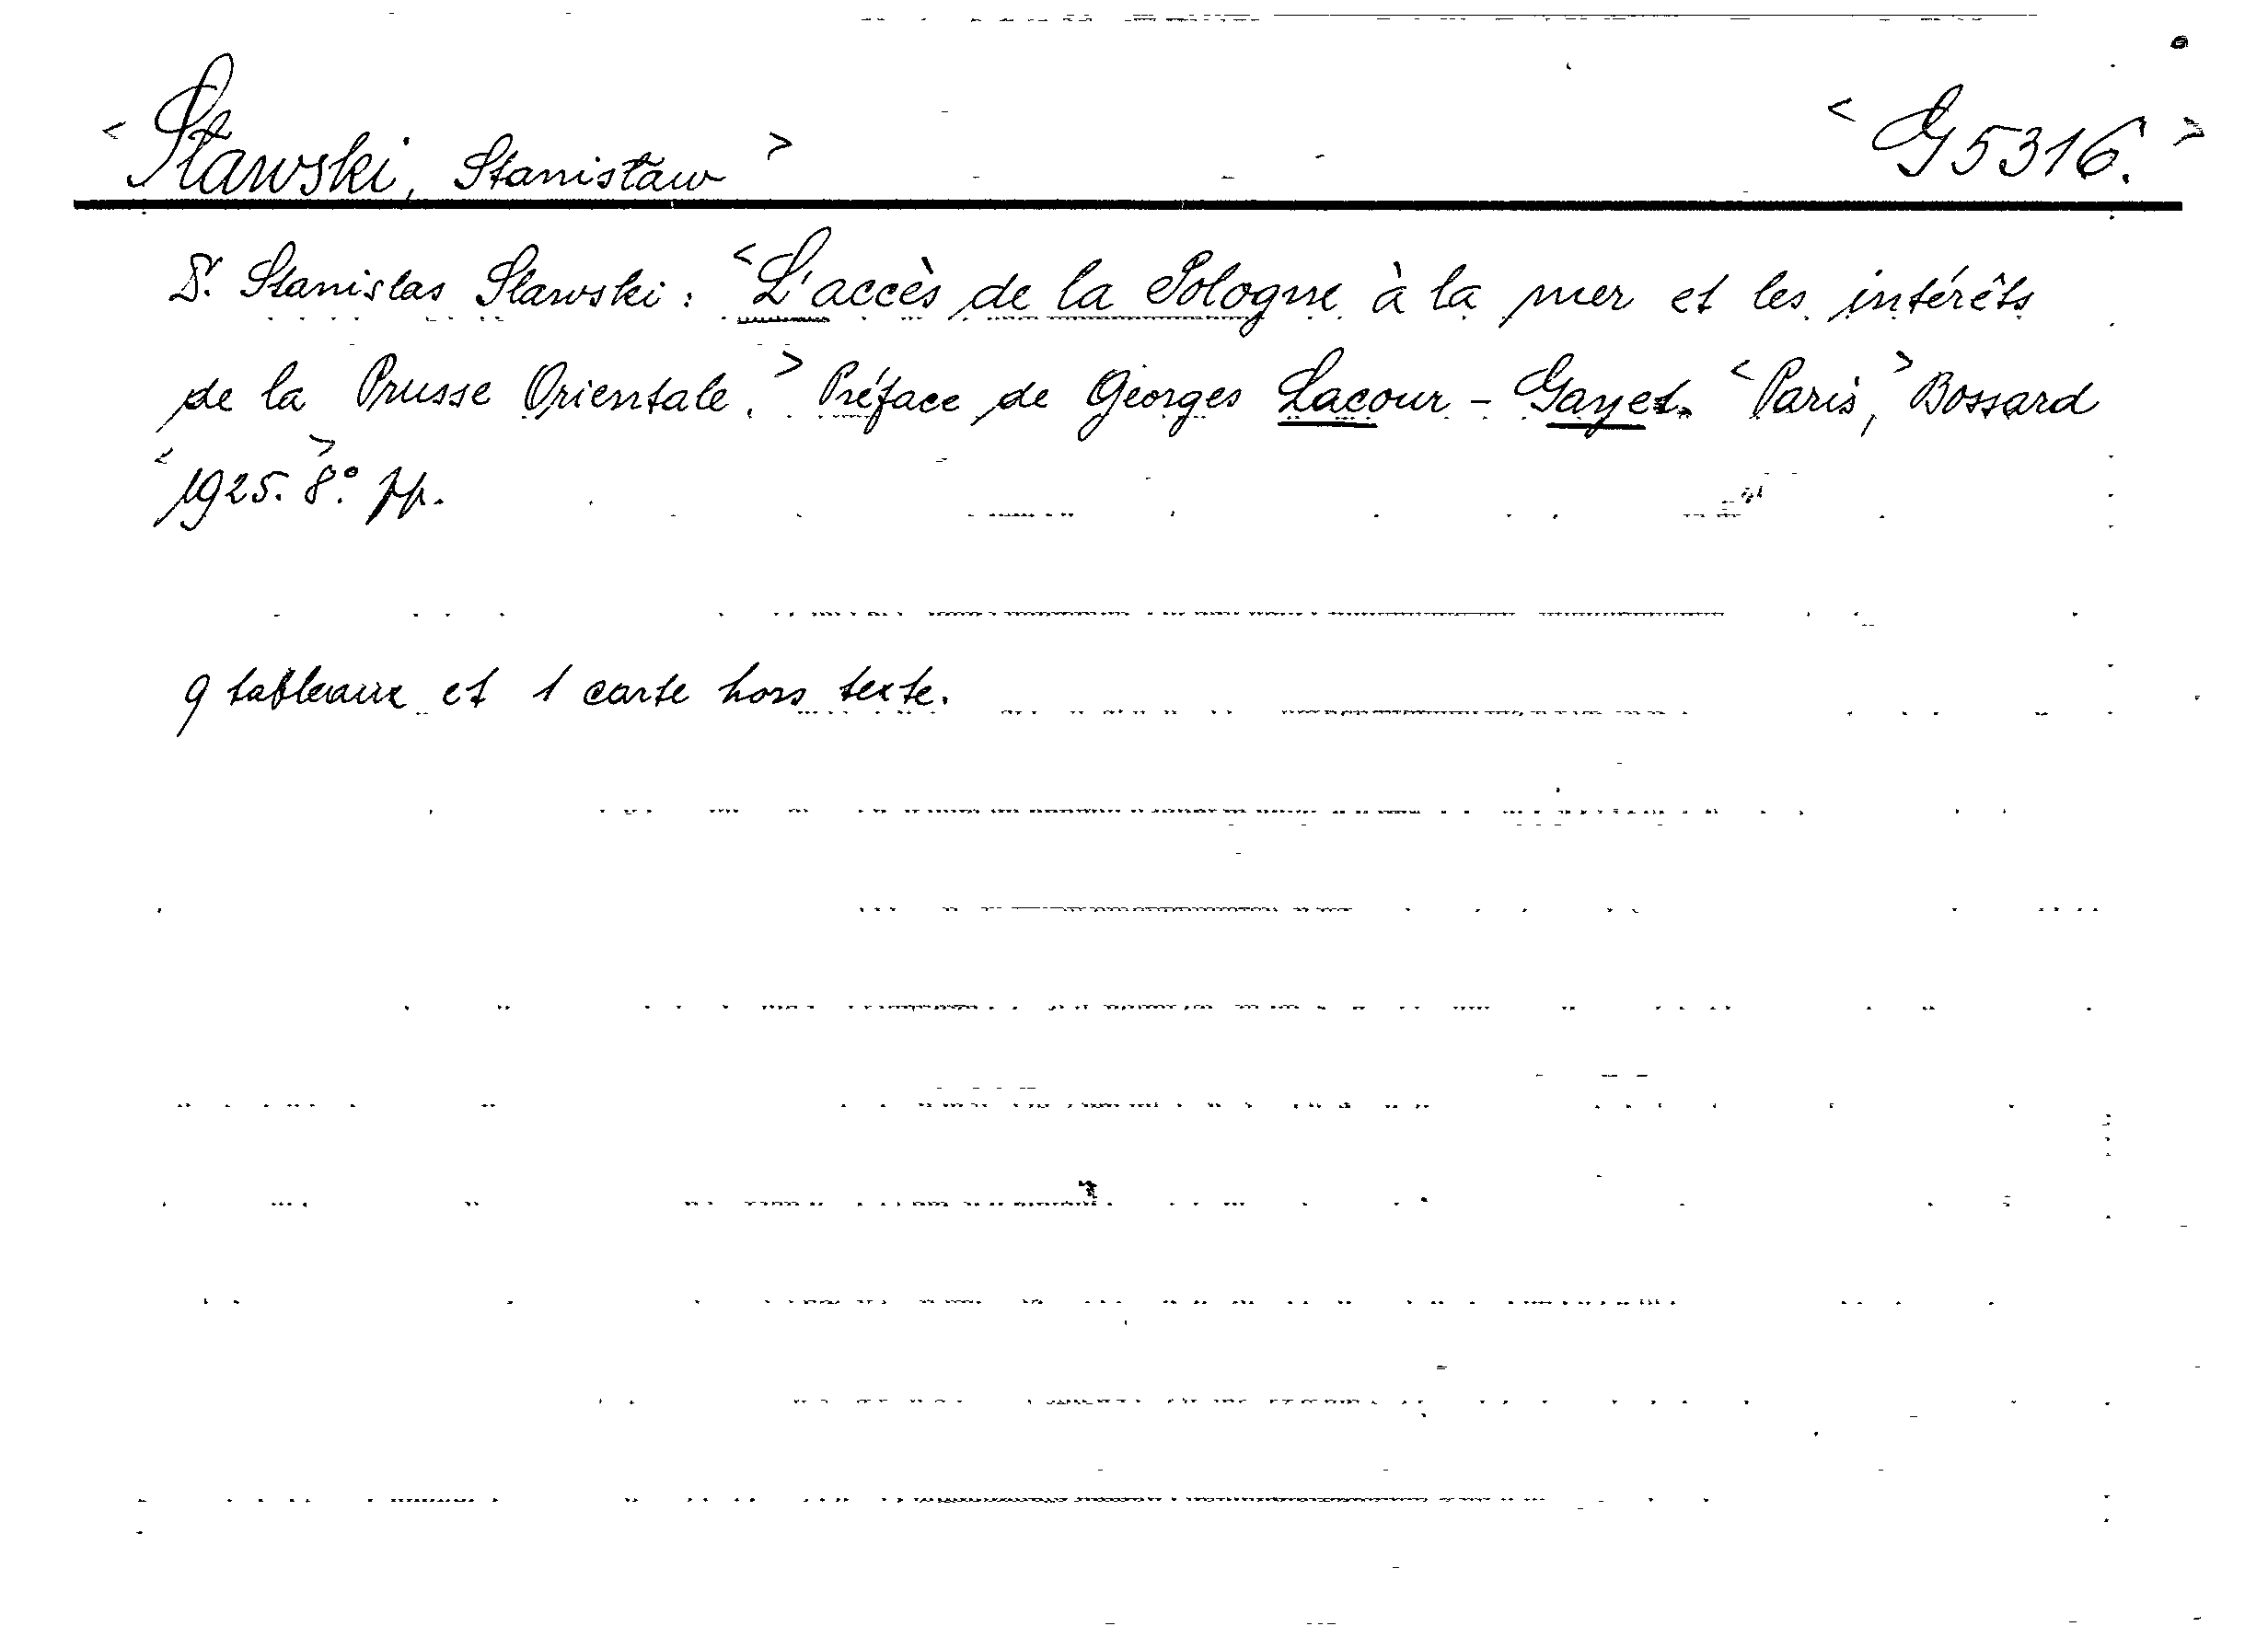 <Sławski, Stanisław> <G 5316.>
Dr. Stanislas Slawski: <L'accès de la Pologne à la mer et les intérêts
de la Prusse Orientale.> Préface de Georges Lacour-Gayet. <Paris,> Bossard
<1925.> 8°. pp.
9 tableaux et 1 carte hors texte.